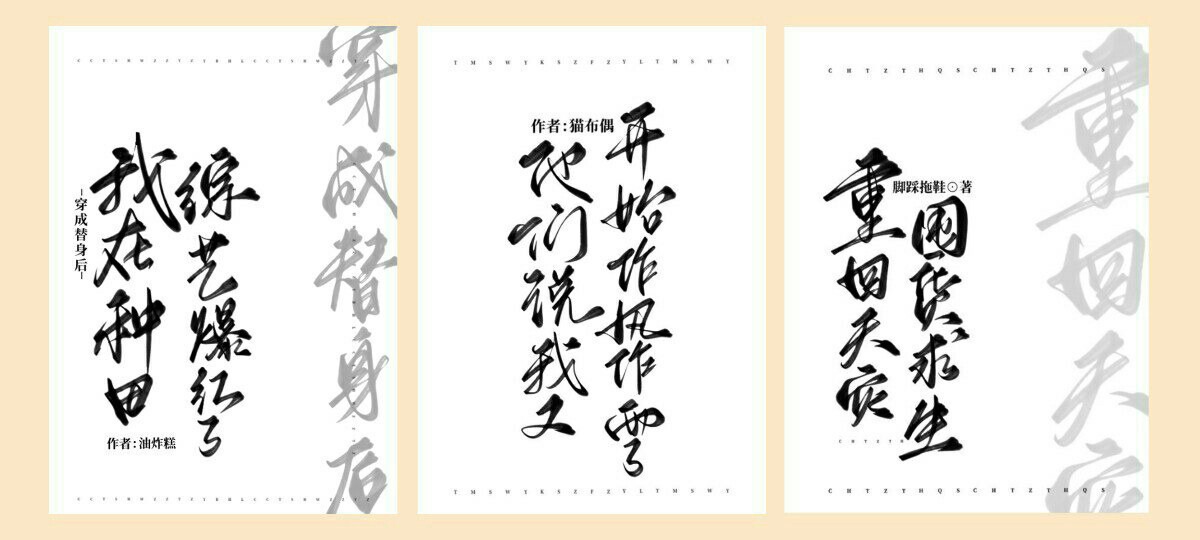 穿成替身后
我在种田
综艺爆红了
-穿成替身后-
作者:油炸糕
T M S W Y K S Z F Z Y L T M S W Y
作者:猫布偶
他们说我又
开始作风作雨了
T M S W Y K S Z F Z Y L T M S W Y
C H T Z T H Q S C H T Z T H Q S
重回天灾
脚踩拖鞋⊙著
重回天灾
囤货求生
C H T Z T H
C H T Z T H Q S C H T Z T H Q S